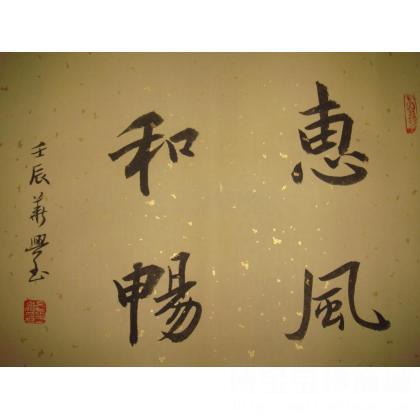 惠風
和暢
壬辰